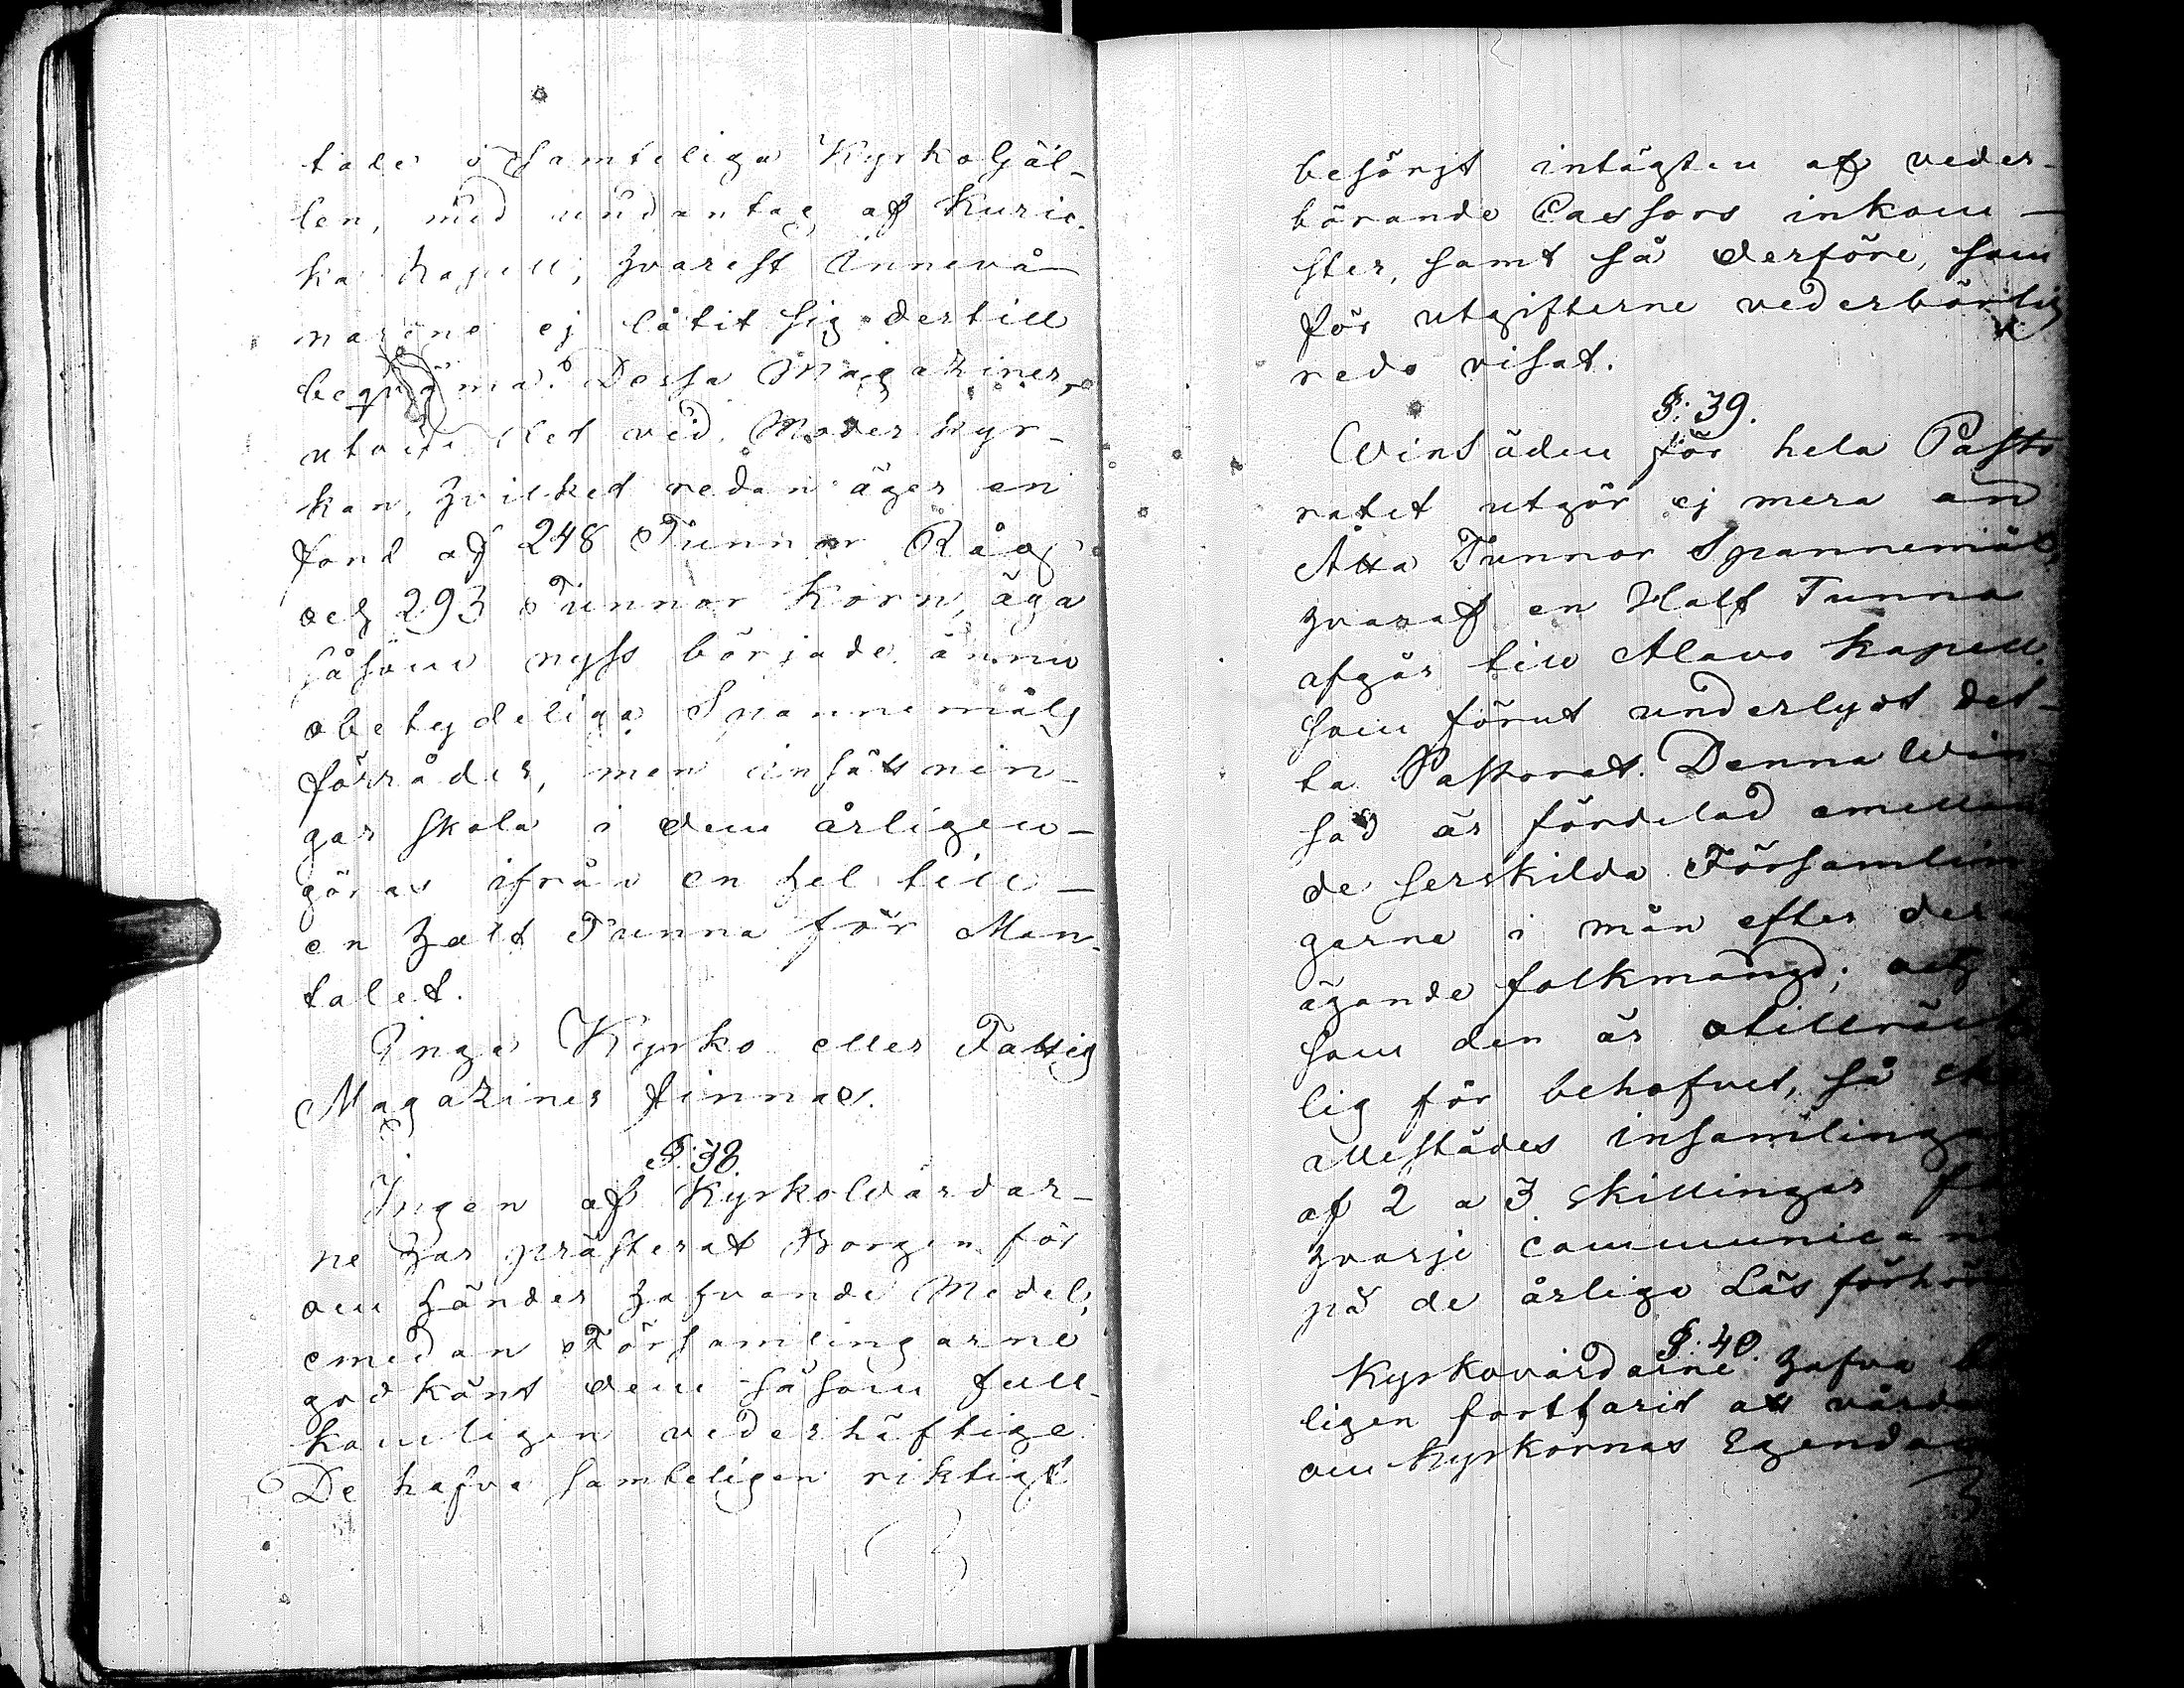 tade i Samteliga Kyrkogäl-
len, med undantag af Kuric-
ka kapell, hvarest Innevå-
narene ej låtit sig dertill
beqväma. Dessa Magaziner,
utom det vid Moderkyr-
kan, hvilket redan äger en
fond af 248 Tunnor Råg
och 293 Tunnor Korn, äga
såsom nyss började ännu
obetydeliga Spannemåls
förråder, men insättnin-
gar skola i dem årligen
göras ifrån en hel till
en half Tunna för Man-
talet.
Inga Kyrko eller Fattig
Magaziner finnas.
§. 38.
Ingen af Kyrkovärdar-
ne har præsterat Borgen för
om händer hafvande Medel,
emedan Församlingarne
godkänt dem såsom full-
komligen vederhäftige.
De hafva samteligen riktigt
besörjt intägten af veder-
börande Cassors inkom-
ster, samt så derföre, som
för utgifterne vederbörlig
redo visat.
§. 39.
Vinsäden för hela Pasto
ratet utgör ej mera än
Åtta Tunnor Spannemål,
hvaraf en Half Tunna
afgår till Alavo kapell,
som förut underlydt det-
ta Pastorat. Denna Vin
säd är fördelad emellan
de serskilda Församlin
garne i mån efter deras
ägande folkmängd; och
som den är otillräck
lig för behofvet, så ske
allestädes insamlingar
af 2 a 3 skillingar för
hvarje Communicant
på de årliga Läsförhör
§. 40.
Kyrkovärdarne hafva
ligen fortfarit att vårda
om Kyrkornas Egendom